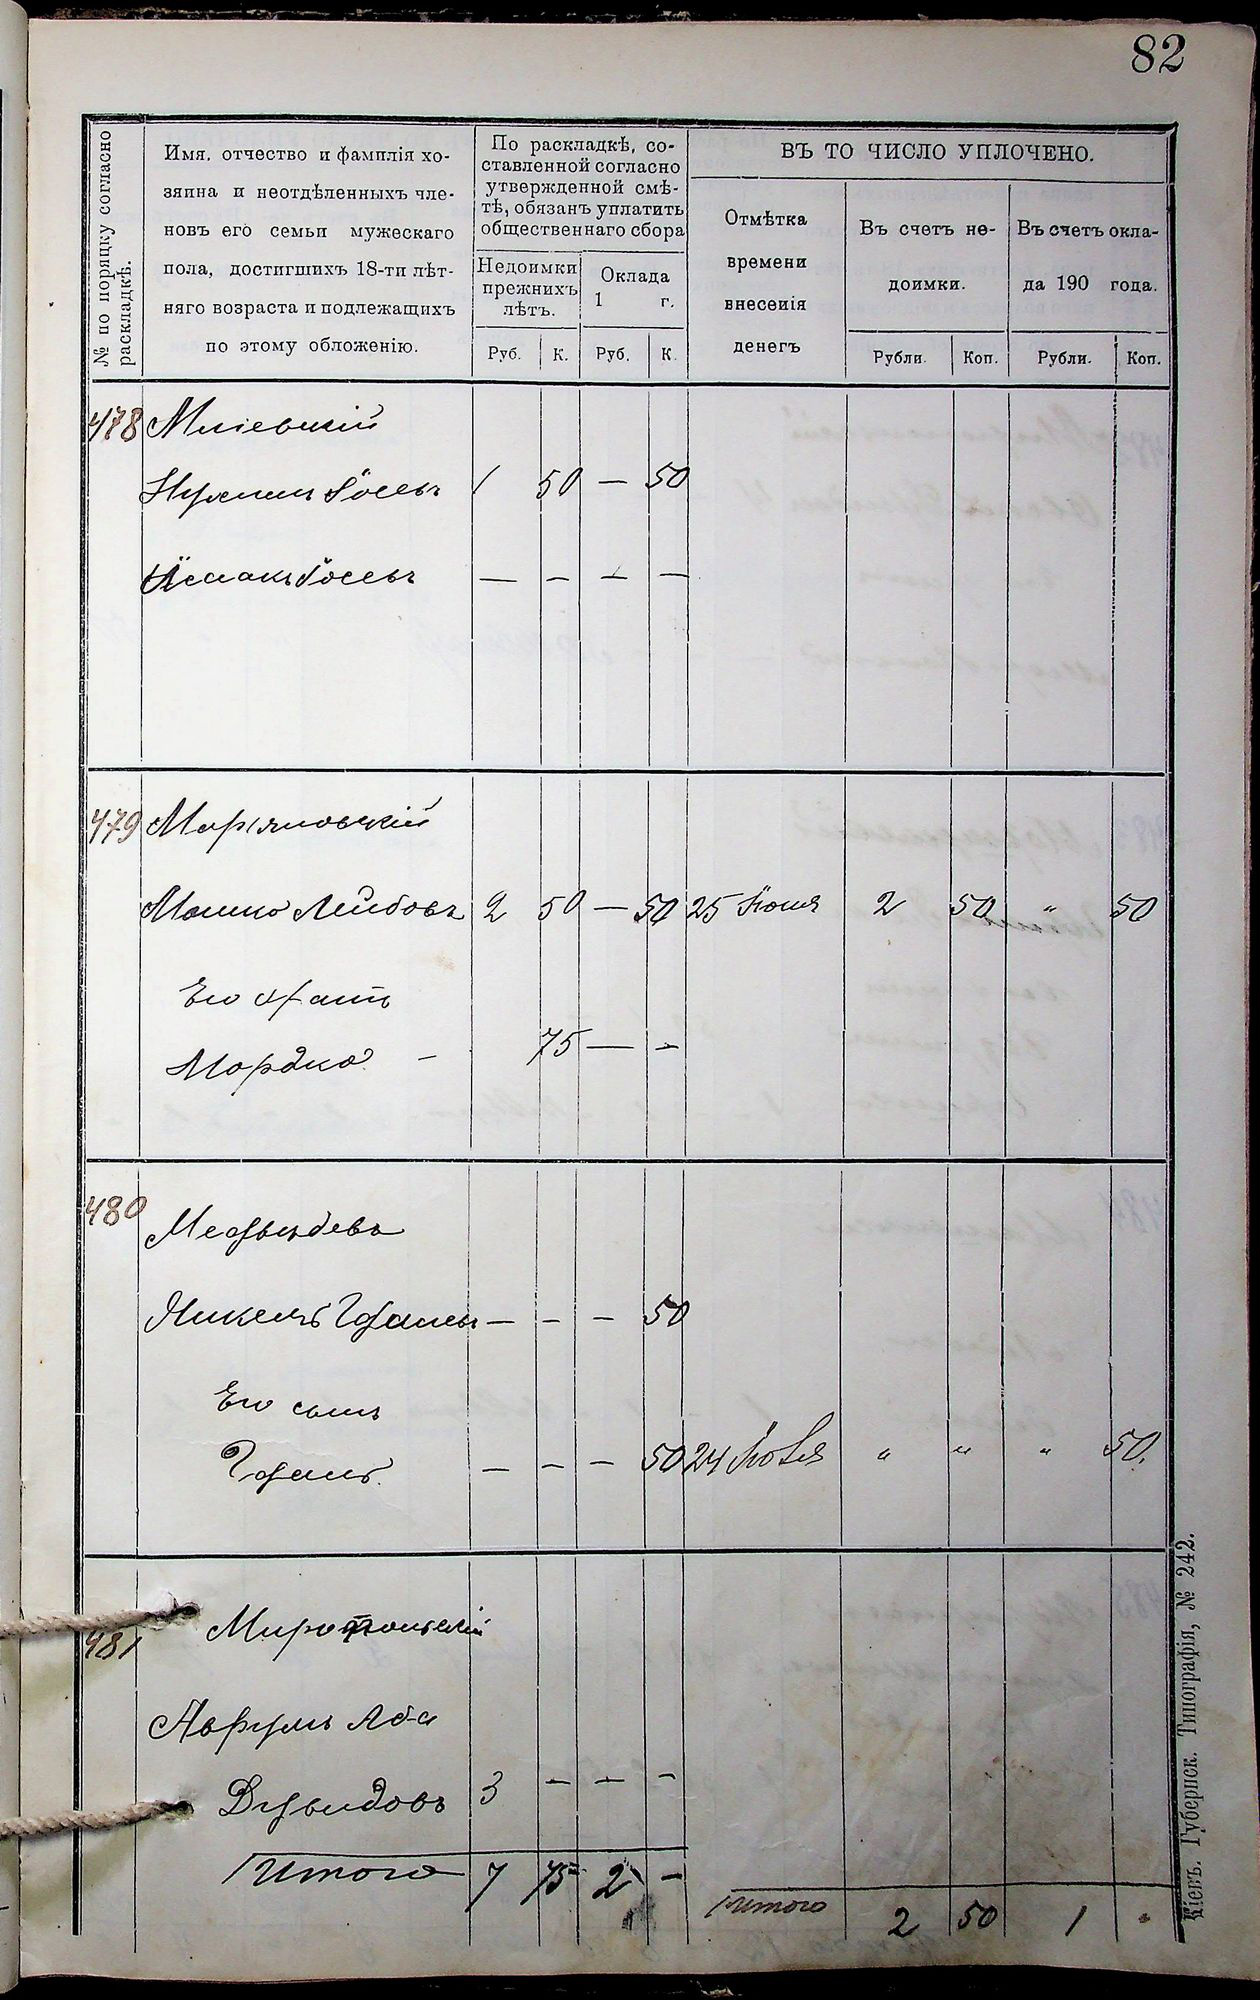 82
№ по порядку согласно
раскладкѣ.
Имя, отчество и фамилія хо-
зяина и неотдѣленныхъ чле-
новъ его семьи мужескаго
пола, достигшихъ 18-ти лѣт-
няго возраста и подлежащихъ
по этому обложенію.
По раскладкѣ, со-
ставленной согласно
утвержденной смѣ-
тѣ, обязанъ уплатить
общественнаго сбора
Недоимки
прежнихъ
лѣтъ.
Оклада
1 г.
Руб. К. Руб. К.
ВЪ ТО ЧИСЛО УПЛОЧЕНО.
Отмѣтка
времени
внесенія
денегъ
Въ счетъ не-
доимки.
Въ счетъ окла-
да 190 года.
Рубли. Коп. Рубли. Коп.
478
1 50 — 50
— — — —
479 Маріяновскій
Мошко Лейбовъ 2 50 — 50 25 Іюня 2 50 " 50
Его братъ
Мордко — 75 — —
480
— — — 50
Его сынъ
— — — 50 24 " " " 50.
481
Аврумъ Аба
Дувидовъ 3 — — —
Итого 7 75 2 —
Итого 2 50 1 "
Кіевъ. Губернск. Типографія, № 242.